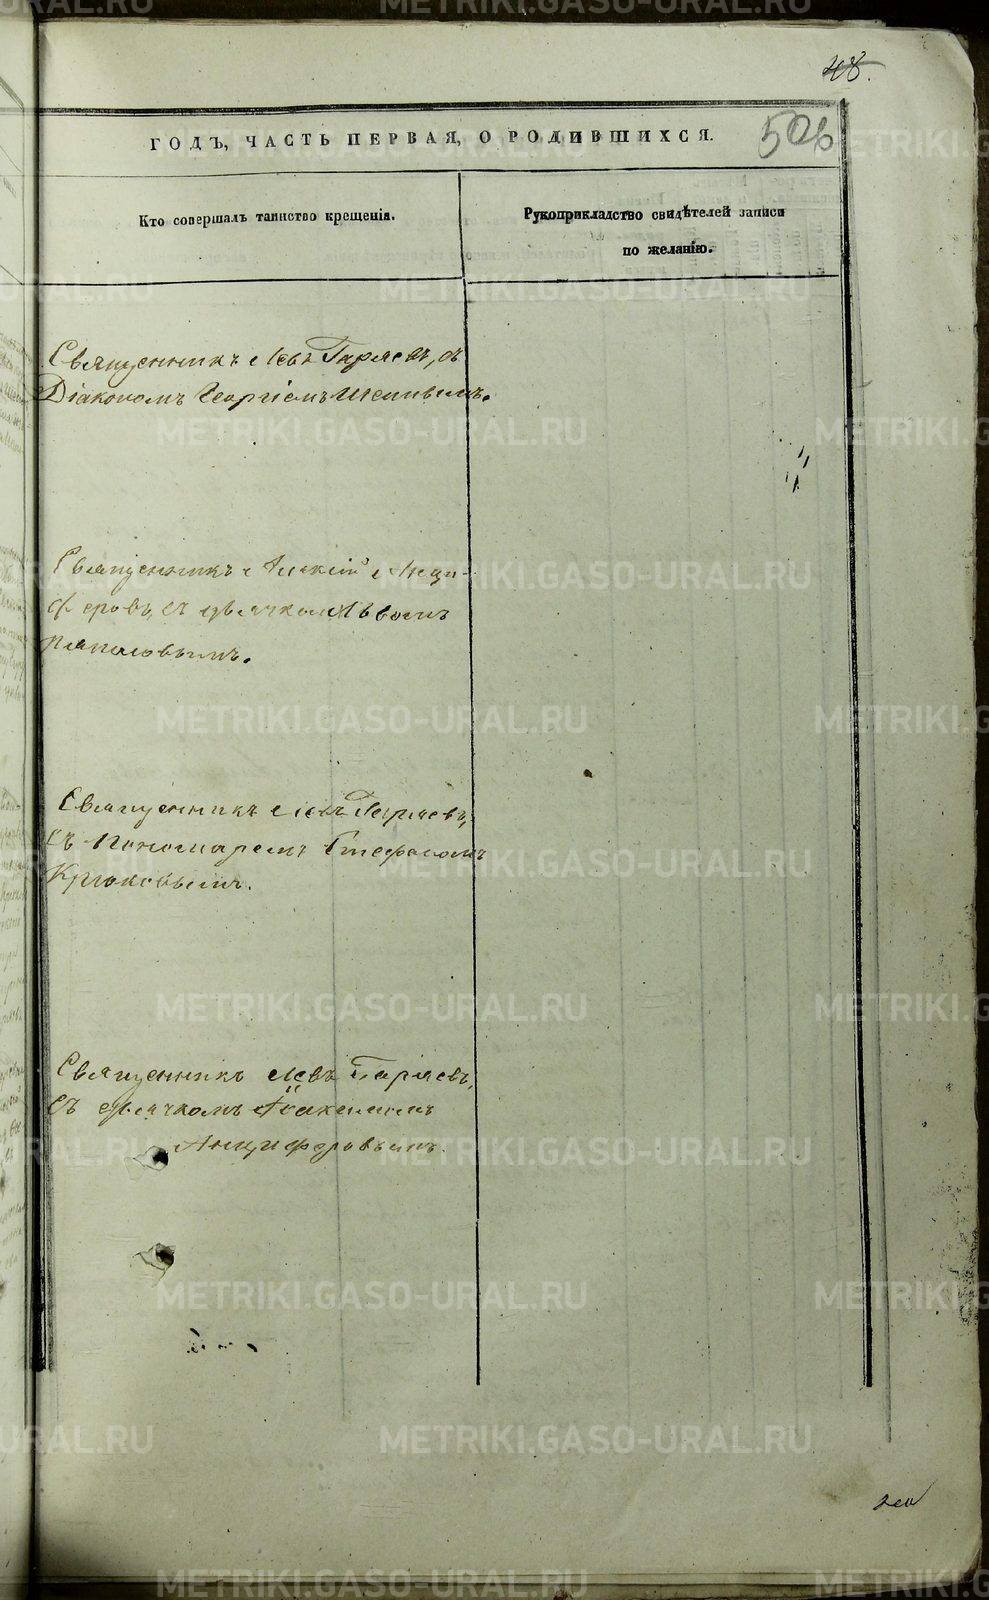 48.
506
ГОДЪ, ЧАСТЬ ПЕРВАЯ, О РОДИВШИХСЯ.
Кто совершалъ таинство крещенія.
Рукоприкладство свидѣтелей записи
по желанію.
Священникъ Левъ Гаряевъ, съ
Діакономъ Георгіемъ
Священникъ Алексій Анци-
феровъ, съ дьячкомъ Львомъ
Священникъ Левъ Гаряевъ,
съ Пономаремъ Стефаномъ
Крюковымъ.
Священникъ Левъ Гаряевъ,
съ дьячкомъ Іоакимомъ
Анциферовымъ.
METRIKI.GASO-URAL.RU